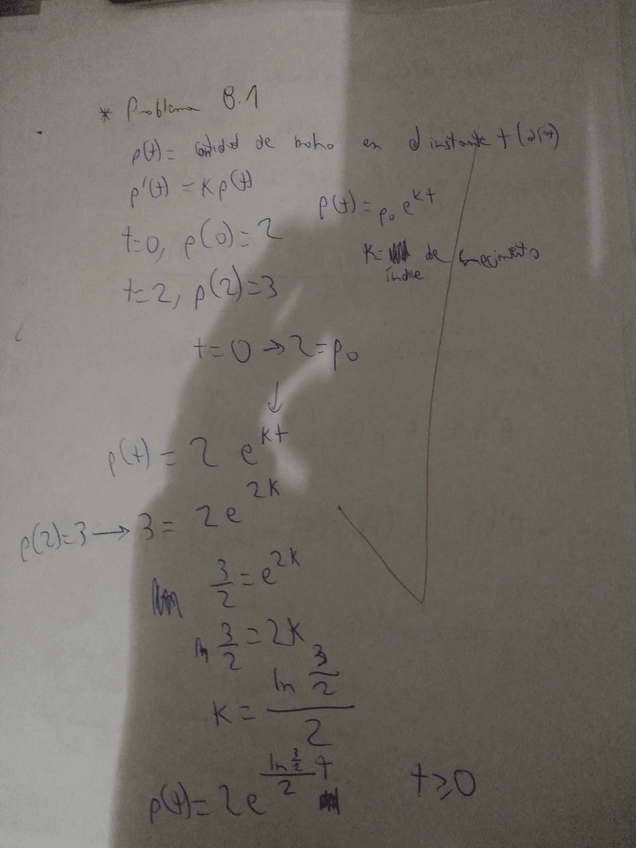 * Problema B.1
p(t) = cantidad de moho en el instante t (días)
p'(t) = K p(t)
p(t) = p₀ e^{kt}
t=0, p(0)=2
K = índice de crecimiento
t=2, p(2)=3
t=0 → 2=p₀
↓
p(t) = 2 e^{kt}
p(2)=3 → 3 = 2e^{2K}
3/2 = e^{2K}
ln 3/2 = 2K
K = (ln 3/2)/2
p(t) = 2e^{(ln 3/2)/2 t} t≥0